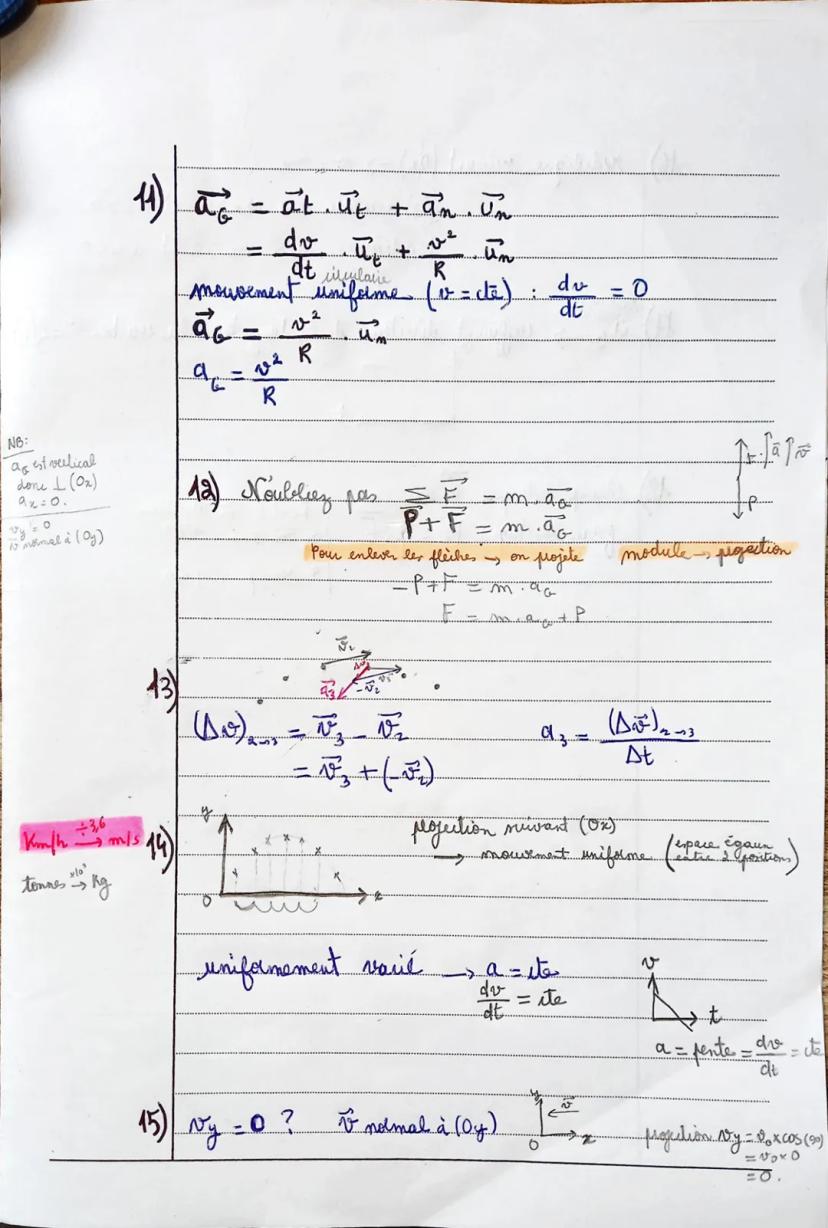 11) a⃗_G = a⃗t . u⃗_t + a⃗_n . u⃗_n
= dv/dt . u⃗_t + v²/R . u⃗_n
circulaire
mouvement uniforme (v = cte) : dv/dt = 0
a⃗_G = v²/R . u⃗_n
a_G = v²/R
NB:
a_G est vertical
donc ⊥ (Ox)
a_x = 0.
v_y = 0
v⃗ normal à (Oy)
12) N'oubliez pas Σ F⃗ = m . a⃗_G
P⃗ + F⃗ = m . a⃗_G
F a⃗ v⃗
P
Pour enlever les flèches → on projete module → projection
-P + F = m . a_G
F = m . a_G + P
13) v⃗₂
a⃗₃ -v⃗₂ v⃗₃
(Δv⃗)₂→₃ = v⃗₃ - v⃗₂ a₃ = (Δv⃗)₂→₃/Δt
= v⃗₃ + (-v⃗₂)
Km/h ÷3,6→ m/s
tonnes ×10³→ Kg
14) y
O x
projection suivant (Ox)
→ mouvement uniforme (espace égaux entre 2 positions)
uniformement varié → a = cte
dv/dt = cte
v
t
a = pente = dv/dt = cte
15) vy = 0 ? v⃗ normal à (Oy)
y v⃗
O x
projection vy = v₀ x cos(90)
= v₀ x 0
= 0.